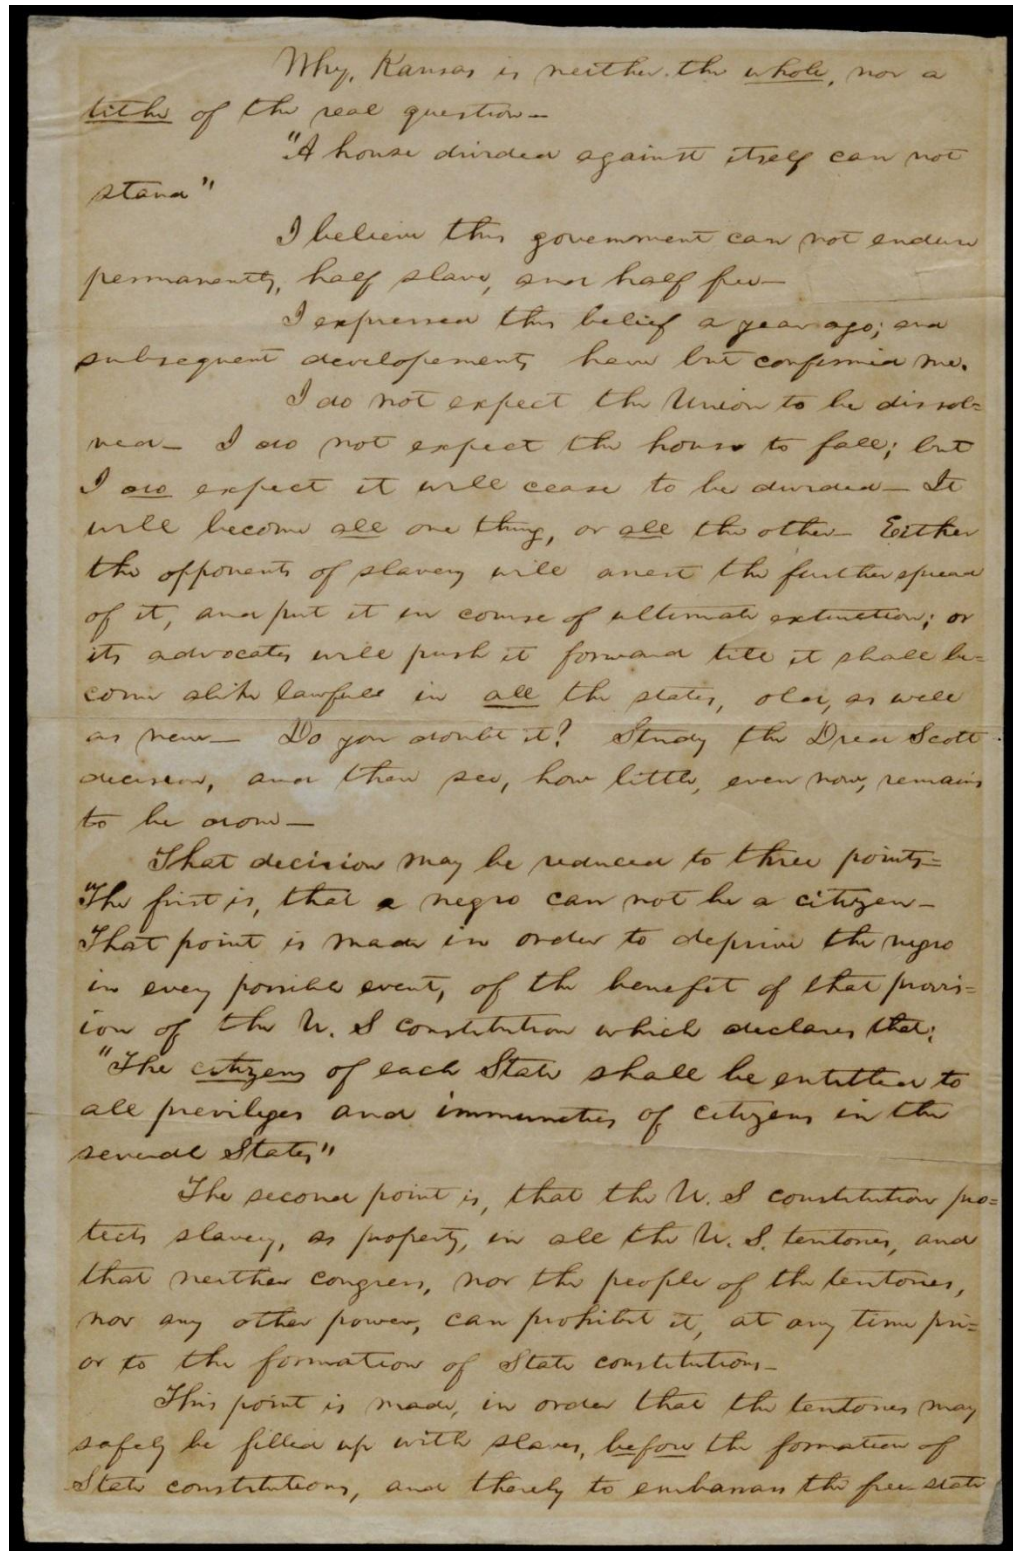 Why, Kansas is neither the whole, nor a
tithe of the real question—
"A house divided against itself can not
stand"
I believe this government can not endure
permanently, half slave, and half free—
I expressed this belief a year ago; and
subsequent developements have but confirmed me.
I do not expect the Union to be dissol=
ved— I do not expect the house to fall; but
I do expect it will cease to be divided— It
will become all one thing, or all the other— Either
the opponents of slavery will arrest the further spread
of it, and put it in course of ultimate extinction; or
its advocates will push it forward till it shall be=
come alike lawfull in all the states, old, as well
as new— Do you doubt it? Study the Dred Scott
decision, and then see, how little, even now, remains
to be done—
That decision may be reduced to three points—
The first is, that a negro can not be a citizen—
That point is made in order to deprive the negro
in every possible event, of the benefit of that provis=
ion of the U. S constitution which declares that:
"The citizens of each State shall be entitled to
all previleges and immunities of citizens in the
several States"
The second point is, that the U. S constitution pro=
tects slavery, as property, in all the U. S. teritories, and
that neither congress, nor the people of the teritories,
nor any other power, can prohibit it, at any time pri=
or to the formation of State constitutions—
This point is made, in order that the teritories may
safely be filled up with slaves, before the formation of
State constitutions, and thereby to embarrass the free state